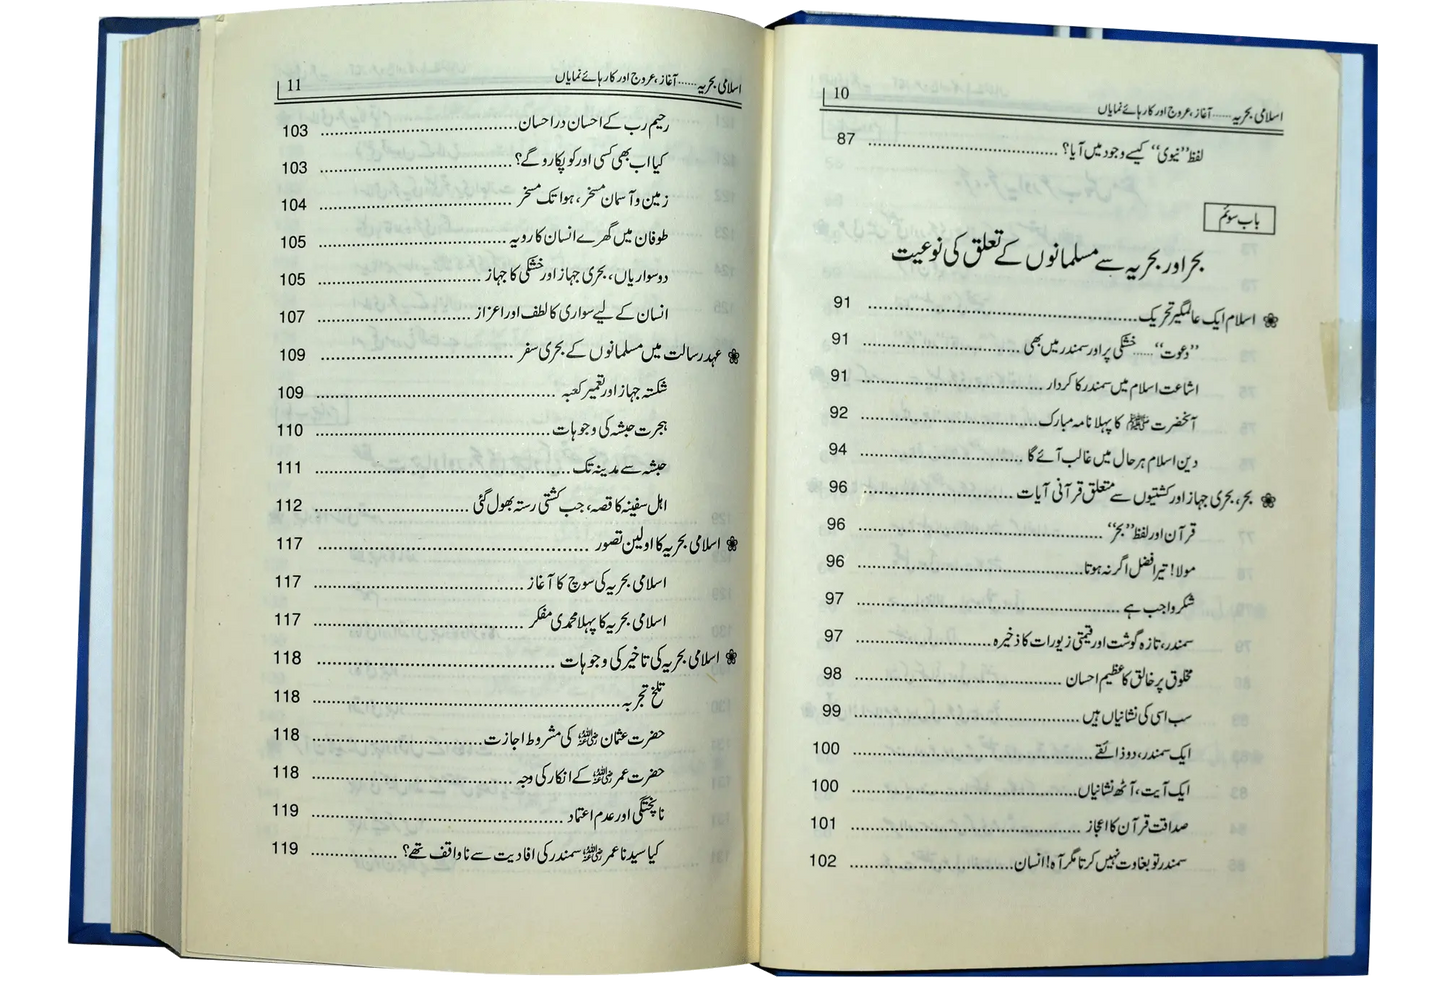 10
اسلامی بحریہ ...... آغاز، عروج اور کارہائے نمایاں
لفظ ’’نیوی‘‘ کیسے وجود میں آیا؟ ........ 87
باب سوئم
بحر اور بحریہ سے مسلمانوں کے تعلق کی نوعیت
❀ اسلام ایک عالمگیر تحریک ........ 91
’’دعوت‘‘ ...... خشکی پر اور سمندر میں بھی ........ 91
اشاعت اسلام میں سمندر کا کردار ........ 91
آنحضرت ﷺ کا پہلا نامہ مبارک ........ 92
دین اسلام ہر حال میں غالب آئے گا ........ 94
❀ بحر، بحری جہاز اور کشتیوں سے متعلق قرآنی آیات ........ 96
قرآن اور لفظ ’’بحر‘‘ ........ 96
مولا! تیرا فضل اگر نہ ہوتا ........ 96
شکر واجب ہے ........ 97
سمندر، تازہ گوشت اور قیمتی زیورات کا ذخیرہ ........ 97
مخلوق پر خالق کا عظیم احسان ........ 98
سب اسی کی نشانیاں ہیں ........ 99
ایک سمندر، دو ذائقے ........ 100
ایک آیت، آٹھ نشانیاں ........ 100
صداقت قرآن کا اعجاز ........ 101
سمندر تو بغاوت نہیں کرتا مگر آہ! انسان ........ 102
11
اسلامی بحریہ ...... آغاز، عروج اور کارہائے نمایاں
رحیم رب کے احسان در احسان ........ 103
کیا اب بھی کسی اور کو پکارو گے؟ ........ 103
زمین و آسمان مسخر، ہوا تک مسخر ........ 104
طوفان میں گھرے انسان کا رویہ ........ 105
دو سواریاں، بحری جہاز اور خشکی کا جہاز ........ 105
انسان کے لیے سواری کا لطف اور اعزاز ........ 107
❀ عہد رسالت میں مسلمانوں کے بحری سفر ........ 109
شکستہ جہاز اور تعمیر کعبہ ........ 109
ہجرت حبشہ کی وجوہات ........ 110
حبشہ سے مدینہ تک ........ 111
اہل سفینہ کا قصہ، جب کشتی رستہ بھول گئی ........ 112
❀ اسلامی بحریہ کا اولین تصور ........ 117
اسلامی بحریہ کی سوچ کا آغاز ........ 117
اسلامی بحریہ کا پہلا محمدی مفکر ........ 117
❀ اسلامی بحریہ کی تاخیر کی وجوہات ........ 118
تلخ تجربہ ........ 118
حضرت عثمان رضی اللہ عنہ کی مشروط اجازت ........ 118
حضرت عمر رضی اللہ عنہ کے انکار کی وجہ ........ 118
ناپختگی اور عدم اعتماد ........ 119
کیا سیدنا عمر رضی اللہ عنہ سمندر کی افادیت سے ناواقف تھے؟ ........ 119